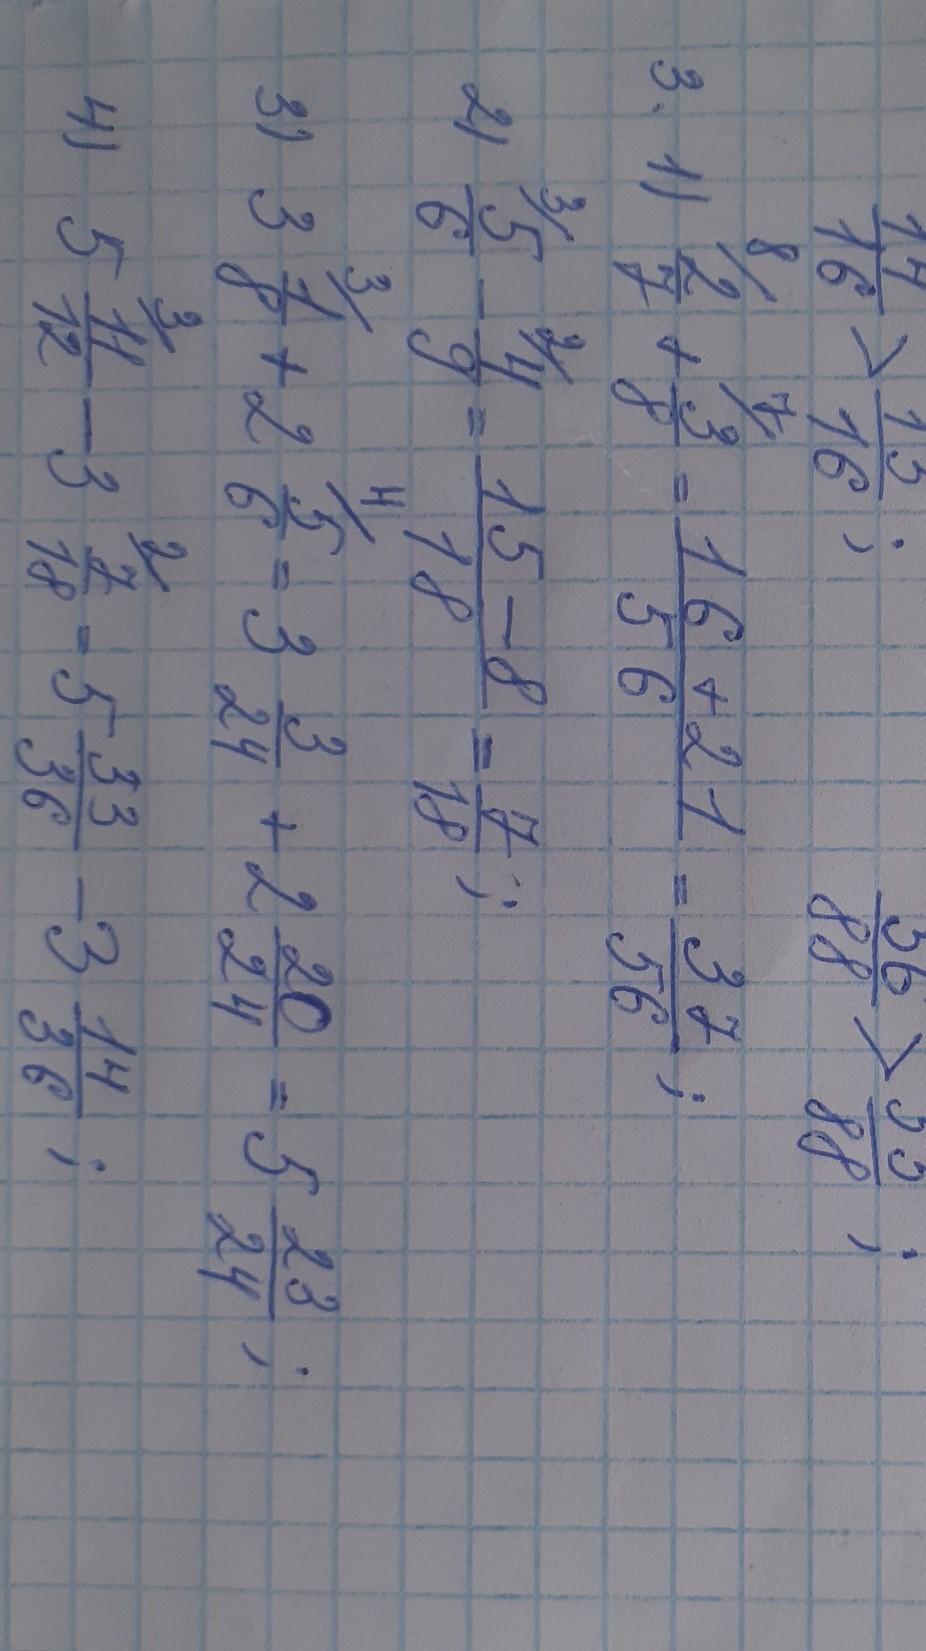 17/16 > 13/16; 56/88 > 33/88;
3. 1) 2/7 8/ + 3/8 7/ = (16+21)/56 = 37/56;
2) 5/6 3/ - 4/9 2/ = (15-8)/18 = 7/18;
3) 3 1/8 3/ + 2 5/6 4/ = 3 3/24 + 2 20/24 = 5 23/24;
4) 5 11/12 3/ - 3 7/18 2/ = 5 33/36 - 3 14/36;